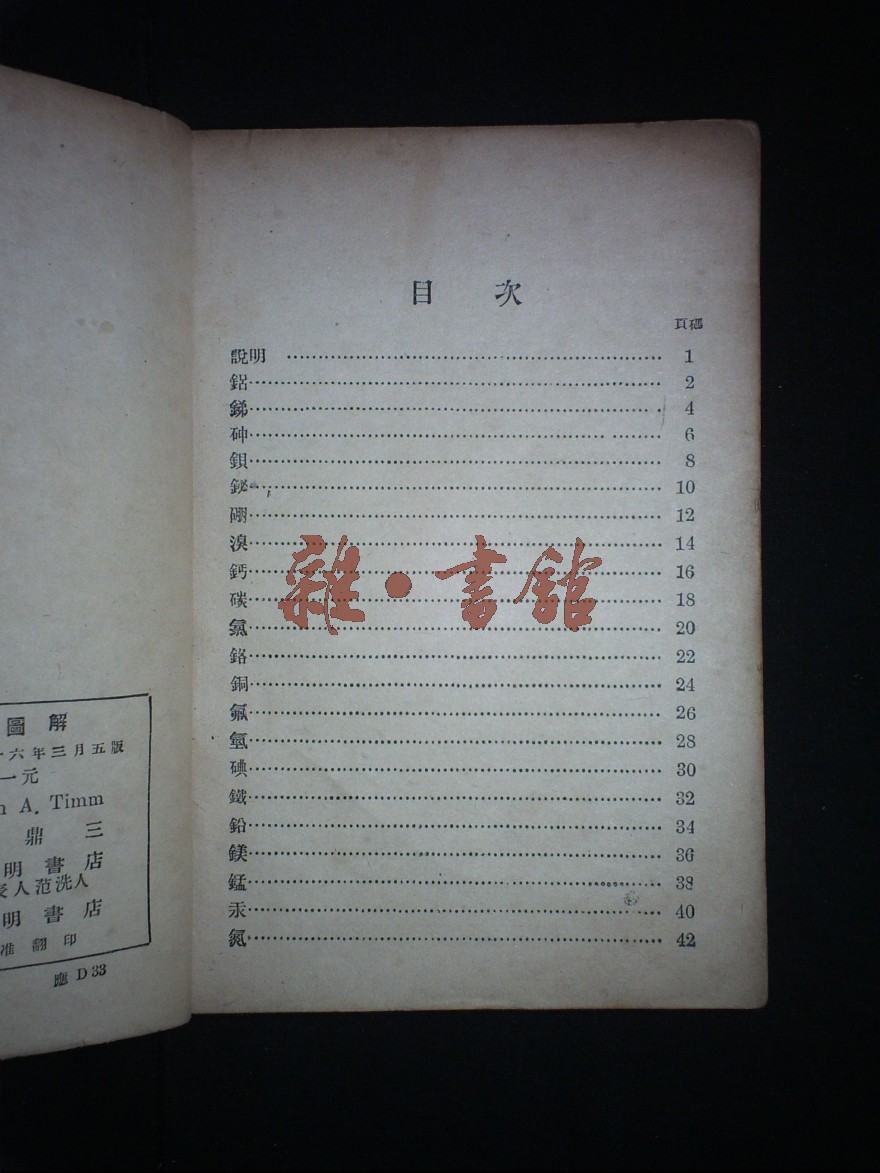 目 次
頁碼
說明 1
鋁 2
銻 4
砷 6
鋇 8
鉍 10
硼 12
溴 14
鈣 16
碳 18
氯 20
鉻 22
銅 24
氟 26
氫 28
碘 30
鐵 32
鉛 34
鎂 36
錳 38
汞 40
氮 42
雜·書館
圖解
六年三月五版
一元
A. Timm
鼎三
明書店
人范洗人
明書店
准翻印
應 D 33